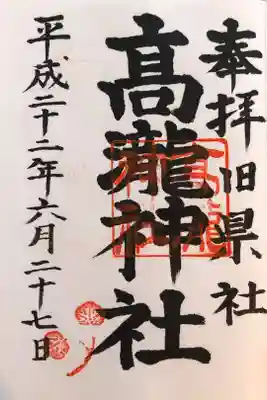 奉拝旧県社
高瀧神社
平成二十二年六月二十七日